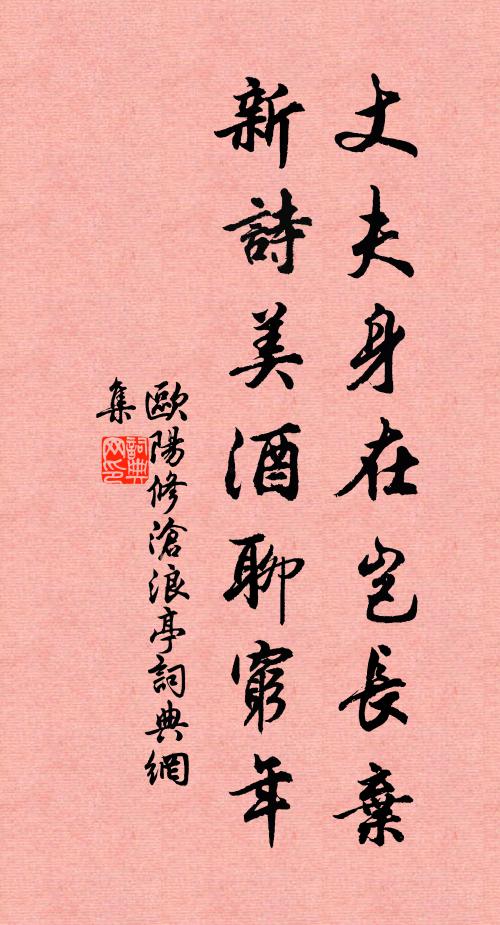 丈夫身在豈長棄
新詩美酒聊窮年
歐陽修滄浪亭詞典網
集
詞典
网印